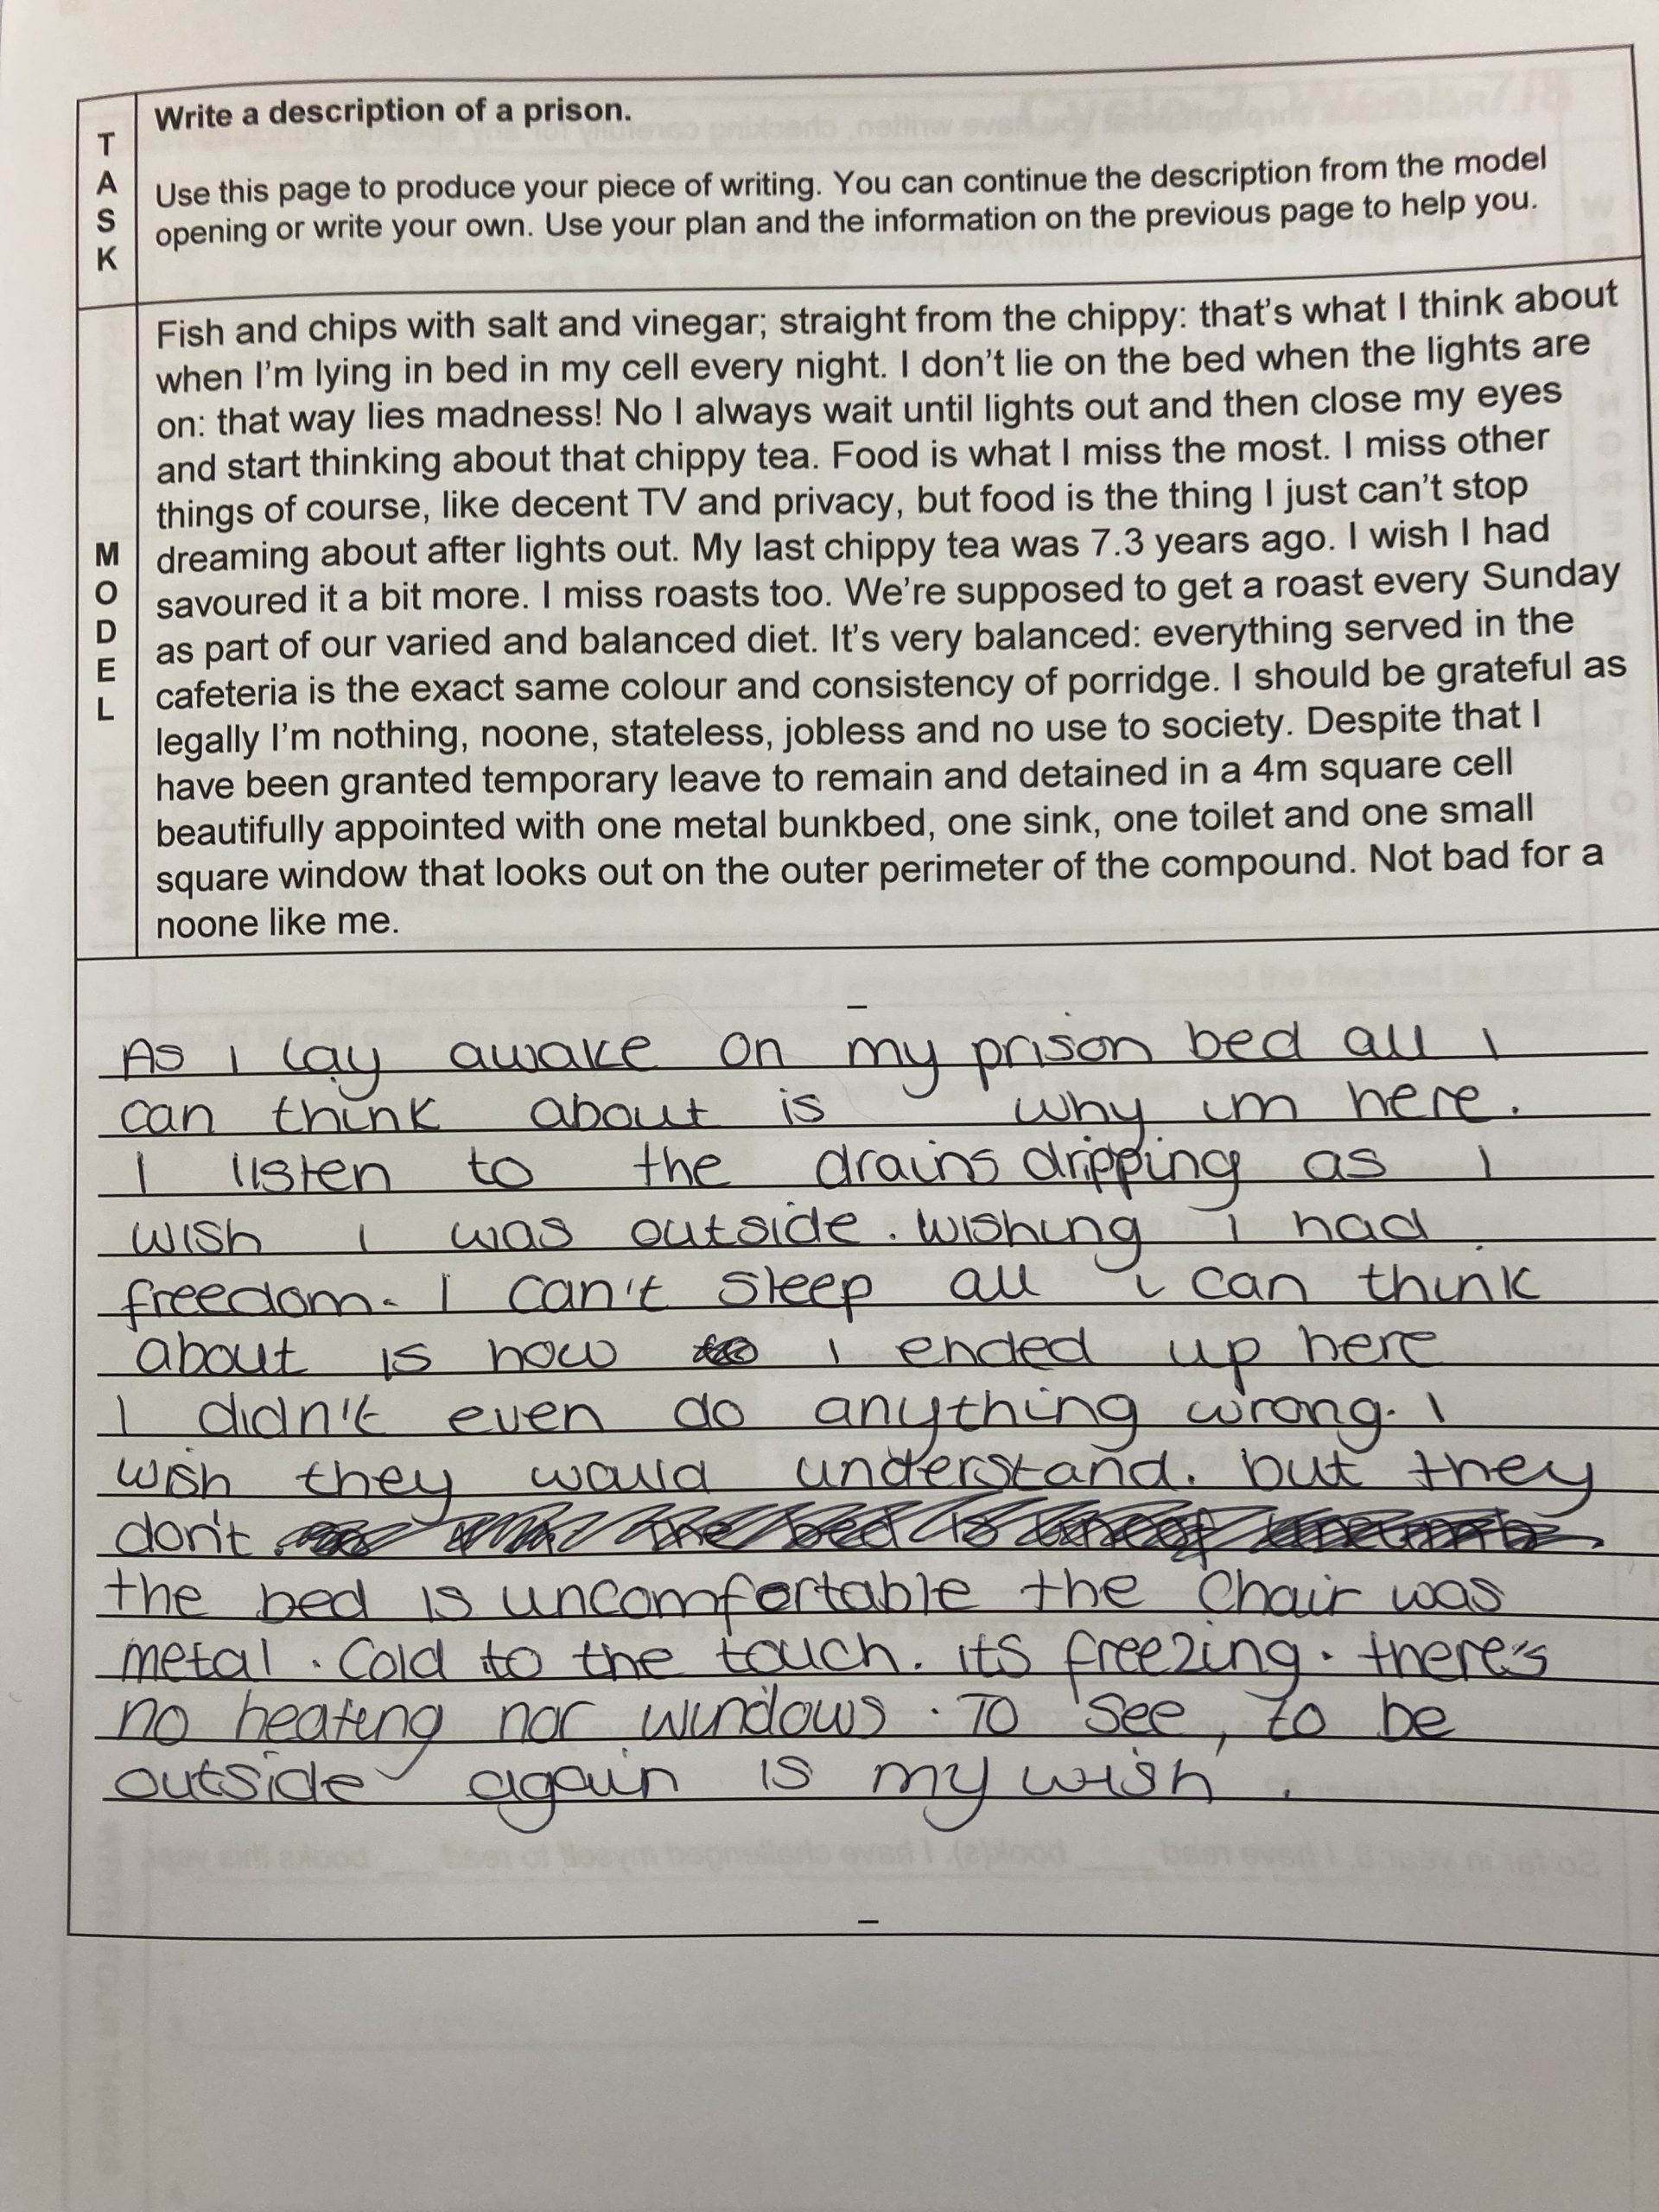 T
A
S
K
Write a description of a prison.
Use this page to produce your piece of writing. You can continue the description from the model
opening or write your own. Use your plan and the information on the previous page to help you.
M
O
D
E
L
Fish and chips with salt and vinegar; straight from the chippy: that's what I think about
when I'm lying in bed in my cell every night. I don't lie on the bed when the lights are
on: that way lies madness! No I always wait until lights out and then close my eyes
and start thinking about that chippy tea. Food is what I miss the most. I miss other
things of course, like decent TV and privacy, but food is the thing I just can't stop
dreaming about after lights out. My last chippy tea was 7.3 years ago. I wish I had
savoured it a bit more. I miss roasts too. We're supposed to get a roast every Sunday
as part of our varied and balanced diet. It's very balanced: everything served in the
cafeteria is the exact same colour and consistency of porridge. I should be grateful as
legally I'm nothing, noone, stateless, jobless and no use to society. Despite that I
have been granted temporary leave to remain and detained in a 4m square cell
beautifully appointed with one metal bunkbed, one sink, one toilet and one small
square window that looks out on the outer perimeter of the compound. Not bad for a
noone like me.
As i lay awake on my prison bed all i
can think about is why im here.
I listen to the drains dripping as I
wish I was outside. wishing i had
freedom. I can't sleep all i can think
about is how i ended up here
I didn't even do anything wrong. I
wish they would understand. but they
don't.
the bed is uncomfortable the chair was
metal. Cold to the touch. its freezing. there's
no heating nor windows. To see, to be
outside again is my wish.